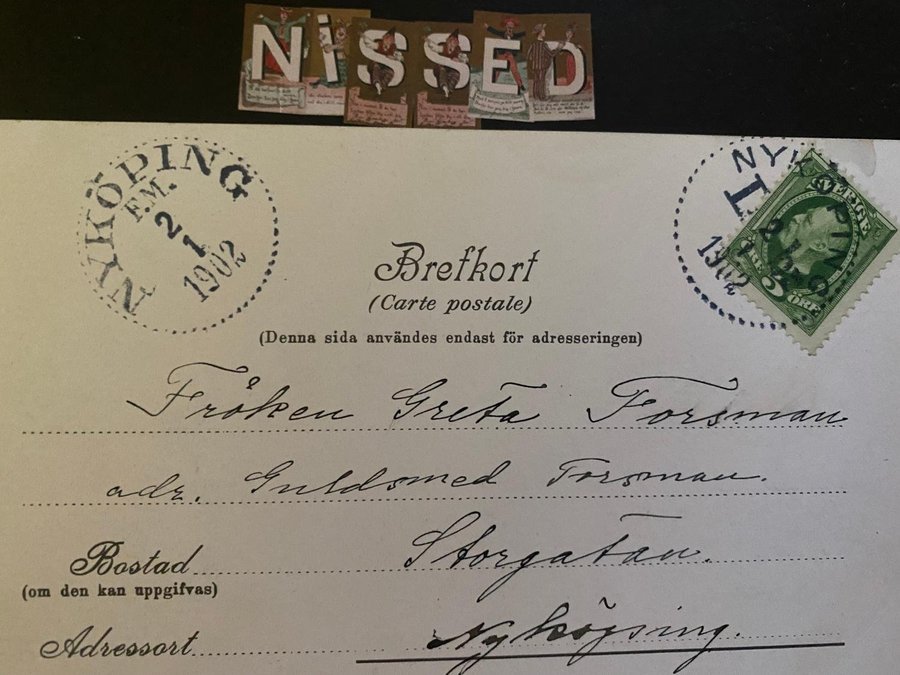 NISSED
NYKÖPING
F.M.
2
1
1902
NYKÖPING
1
2 1
1902
SVERIGE
5 ÖRE
Brefkort
(Carte postale)
(Denna sida användes endast för adresseringen)
Fröken Greta Forsman
adr. Guldsmed Forsman.
Bostad Storgatan.
(om den kan uppgifvas)
Adressort Nyköping.